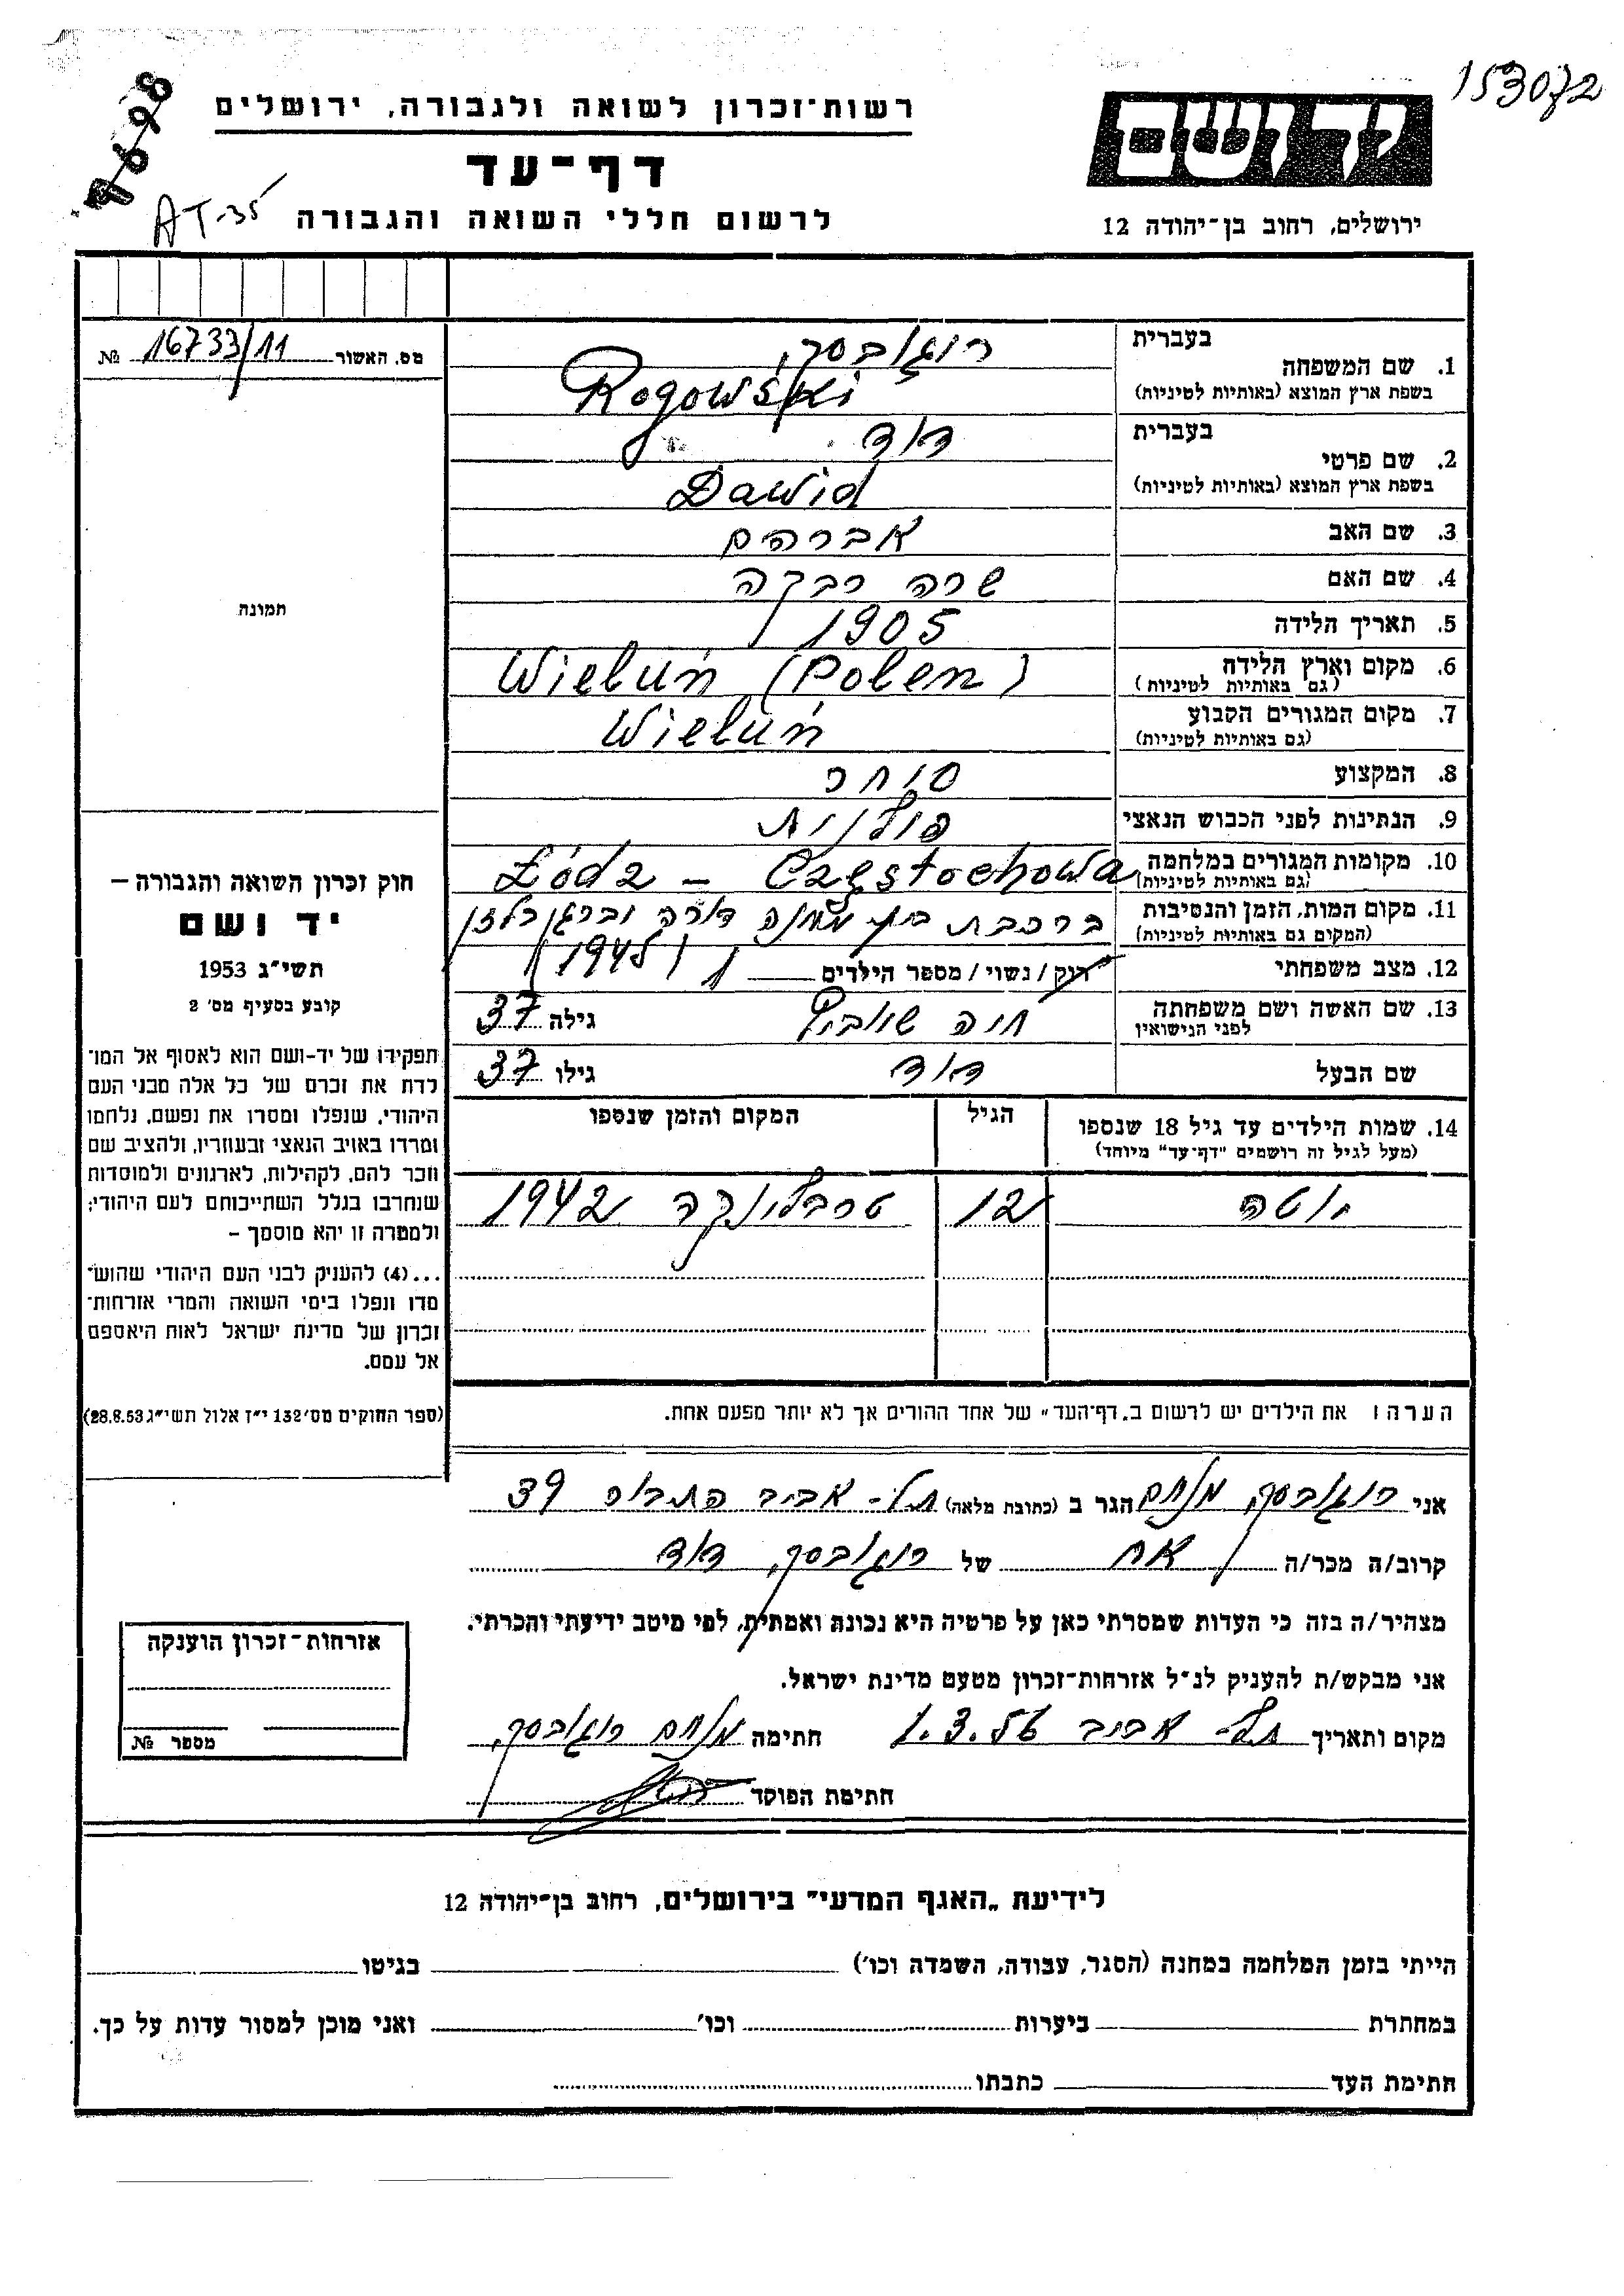 153072
9698
AT-35
רשות־זכרון לשואה ולגבורה, ירושלים
דף-עד
לרשום חללי השואה והגבורה
יד ושם
ירושלים, רחוב בן־יהודה 12
מס. האשור 16733/11 №
תמונה
בעברית רוגובסקי
1. שם המשפחה
בשפת ארץ המוצא (באותיות לטיניות) Rogowski
בעברית דוד
2. שם פרטי
בשפת ארץ המוצא (באותיות לטיניות) Dawid
3. שם האב אברהם
4. שם האם שרה רבקה
5. תאריך הלידה 1905
6. מקום וארץ הלידה Wieluń (Polen)
(גם באותיות לטיניות)
7. מקום המגורים הקבוע Wieluń
(גם באותיות לטיניות)
8. המקצוע סוחר
9. הנתינות לפני הכבוש הנאצי פולנית
10. מקומות המגורים במלחמה Łódz – Częstochowa
(גם באותיות לטיניות)
11. מקום המות, הזמן והנסיבות ברכבת בין מחנה דורה וברגן בלזן
(המקום גם באותיות לטיניות) 1945
12. מצב משפחתי רוק / נשוי / מספר הילדים 1
13. שם האשה ושם משפחתה חיה גילה 37
לפני הנישואין
שם הבעל דוד גילו 37
14. שמות הילדים עד גיל 18 שנספו הגיל המקום והזמן שנספו
(מעל לגיל זה רושמים "דף־עד" מיוחד)
יוטה 12 טרבלינקה 1942
הערה ו את הילדים יש לרשום ב„דף־העד" של אחד ההורים אך לא יותר מפעם אחת.
חוק זכרון השואה והגבורה –
יד ושם
תשי"ג 1953
קובע בסעיף מס' 2
תפקידו של יד-ושם הוא לאסוף אל המו־
לדת את זכרם של כל אלה מבני העם
היהודי, שנפלו ומסרו את נפשם, נלחמו
ומרדו באויב הנאצי ובעוזריו, ולהציב שם
וזכר להם, לקהילות, לארגונים ולמוסדות
שנחרבו בגלל השתייכותם לעם היהודי;
ולמטרה זו יהא מוסמך –
...(4) להעניק לבני העם היהודי שהוש־
מדו ונפלו בימי השואה והמרי אזרחות־
זכרון של מדינת ישראל לאות היאספם
אל עמם.
(ספר החוקים מס' 132 י"ז אלול תשי"ג 28.8.53)
אני רוגובסקי מנחם הגר ב (כתובת מלאה) תל-אביב התבור 39
קרוב/ה מכר/ה אח של רוגובסקי דוד
מצהיר/ה בזה כי העדות שמסרתי כאן על פרטיה היא נכונה ואמתית, לפי מיטב ידיעתי והכרתי.
אני מבקש/ת להעניק לנ"ל אזרחות־זכרון מטעם מדינת ישראל.
מקום ותאריך תל-אביב 1.3.56 חתימה מנחם רוגובסקי
חתימת הפוקד
אזרחות־זכרון הוענקה
מספר №
לידיעת „האגף המדעי" בירושלים, רחוב בן־יהודה 12
הייתי בזמן המלחמה במחנה (הסגר, עבודה, השמדה וכו') בגיטו
במחתרת ביערות וכו' ואני מוכן למסור עדות על כך.
חתימת העד כתבתו